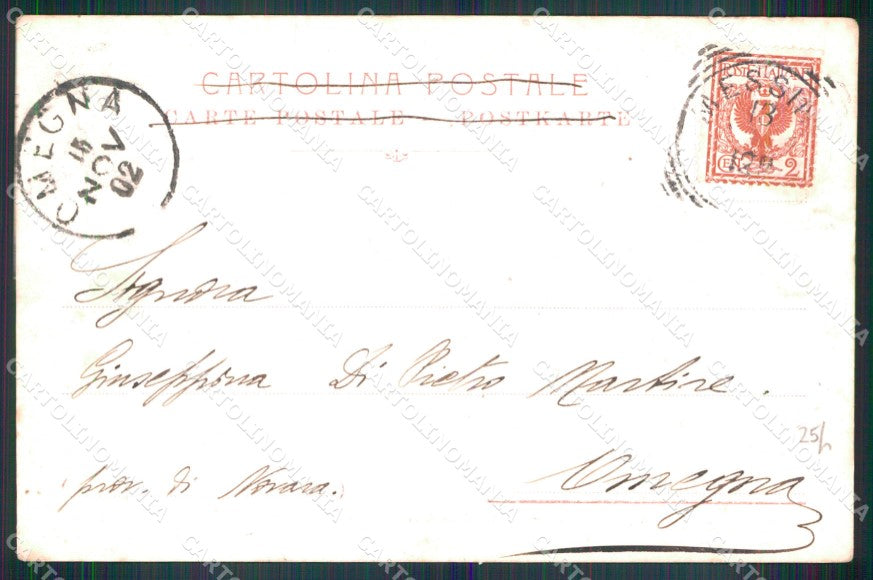 CARTOLINA POSTALE
CARTE POSTALE POSTKARTE
OMEGNA
15 NOV 02
MESSIN
13
POSTE ITALIANE
2
Signora
Giuseppina Di Pietro Martire.
prov. di Novara.
Omegna
25/
CARTOLINOMANIA